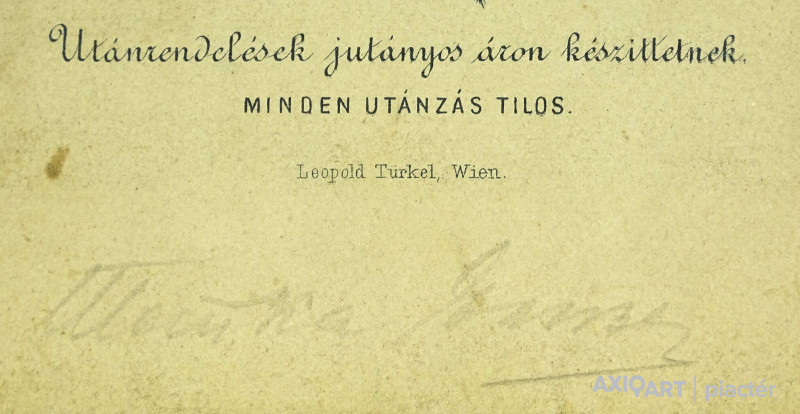 Utánrendelések jutányos áron készittetnek.
MINDEN UTÁNZÁS TILOS.
Leopold Türkel, Wien.
AXIOART | piactér